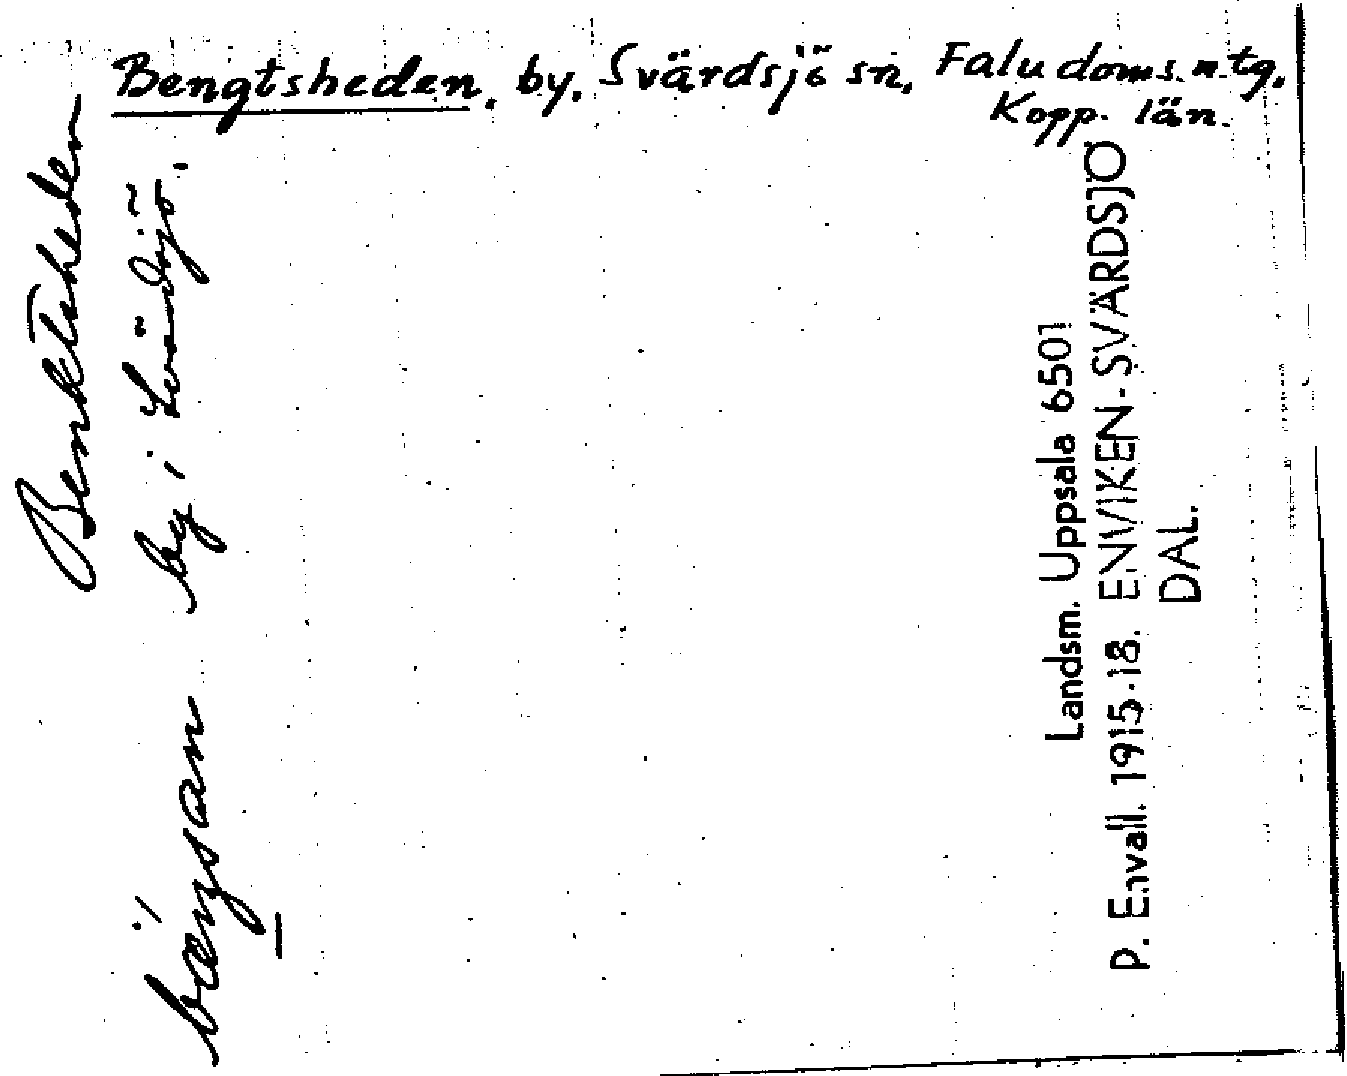 Bengtsheden, by, Svärdsjö sn, Falu doms.n.tg.
Kopp. län.
Benktsheden
by i Svärdsjö.
Landsm. Uppsala 6501
P. Envall. 1915-18. ENVIKEN-SVÄRDSJÖ
DAL.